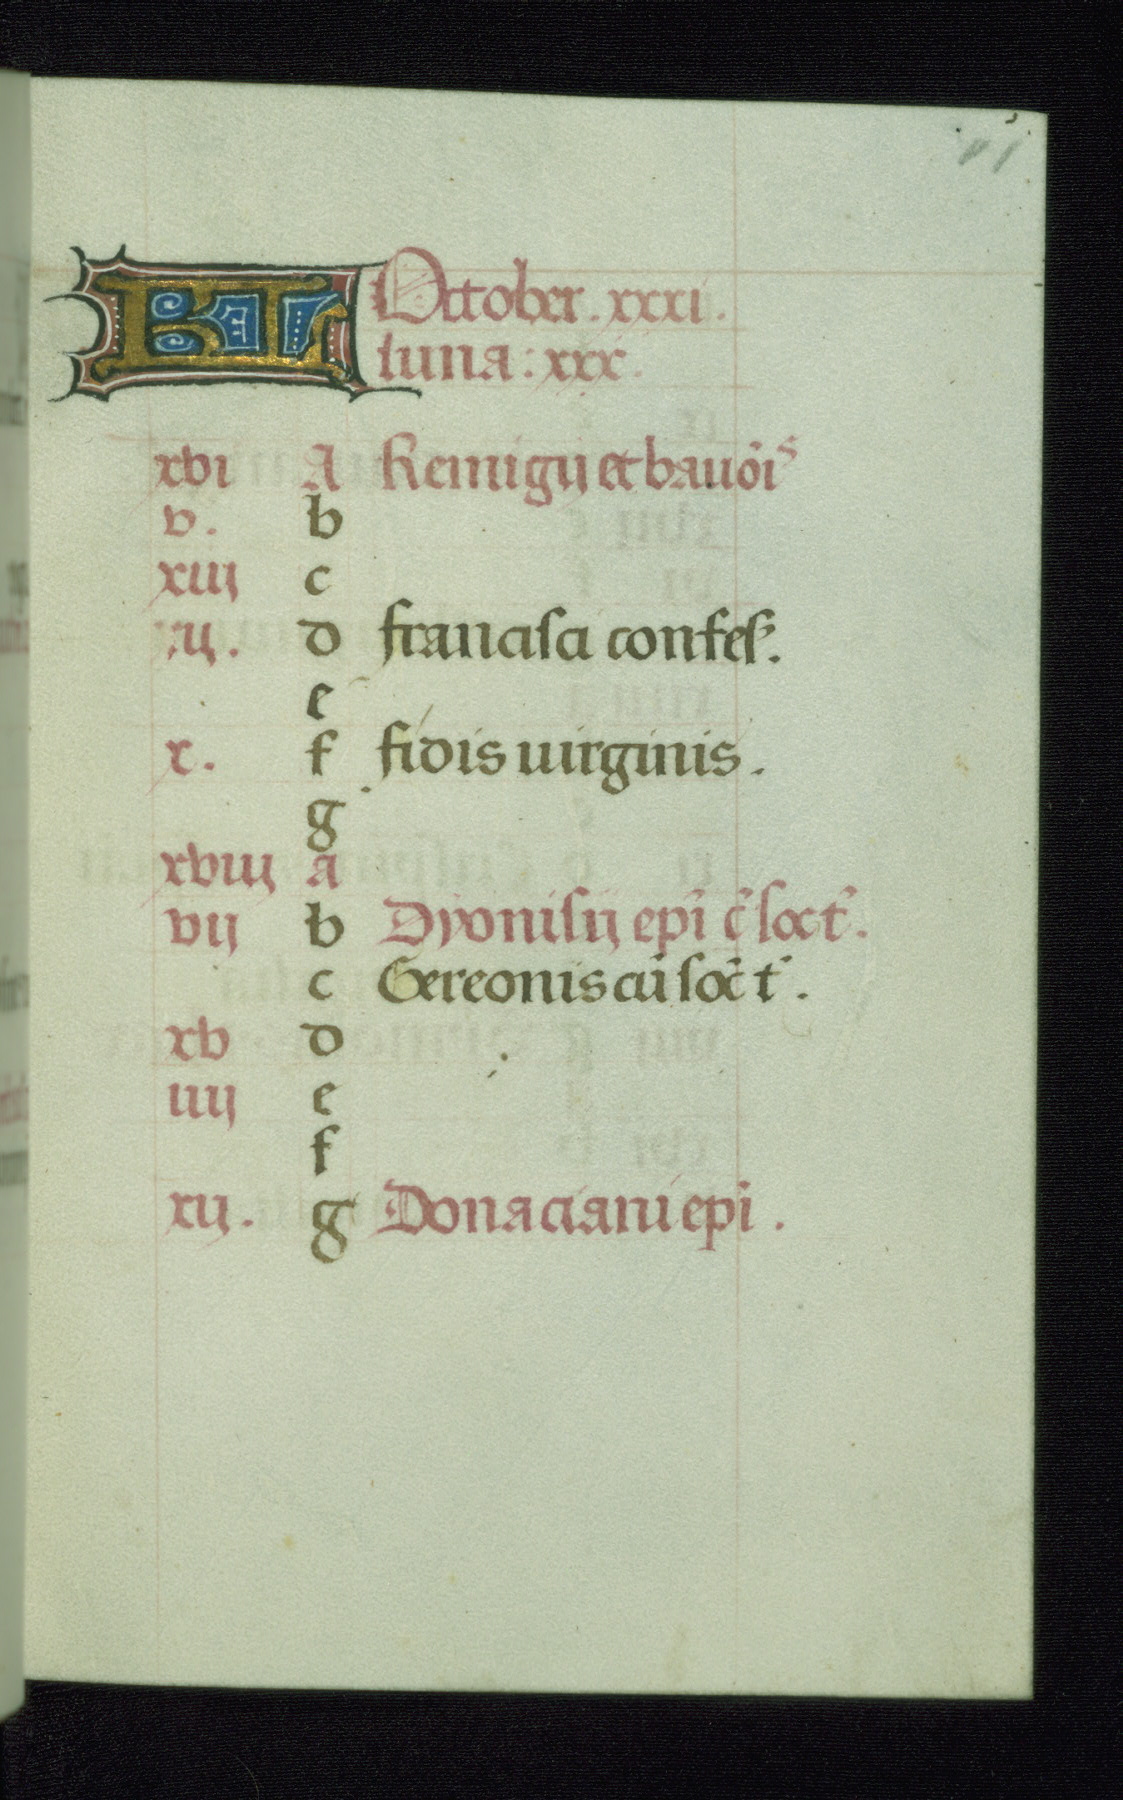 KL October . xxxi .
luna : xxx .
xvi A Remigij et bauōis
v . b
xiij c
ij . d francisci confes .
e
x . f fidis uirginis .
g
xviij a
vij b Dyonisij epī c̄ soc t̄ .
c Gereonis cū soc̄ t̄ .
xv d
iiij e
f
xij . g Donaciani epī .